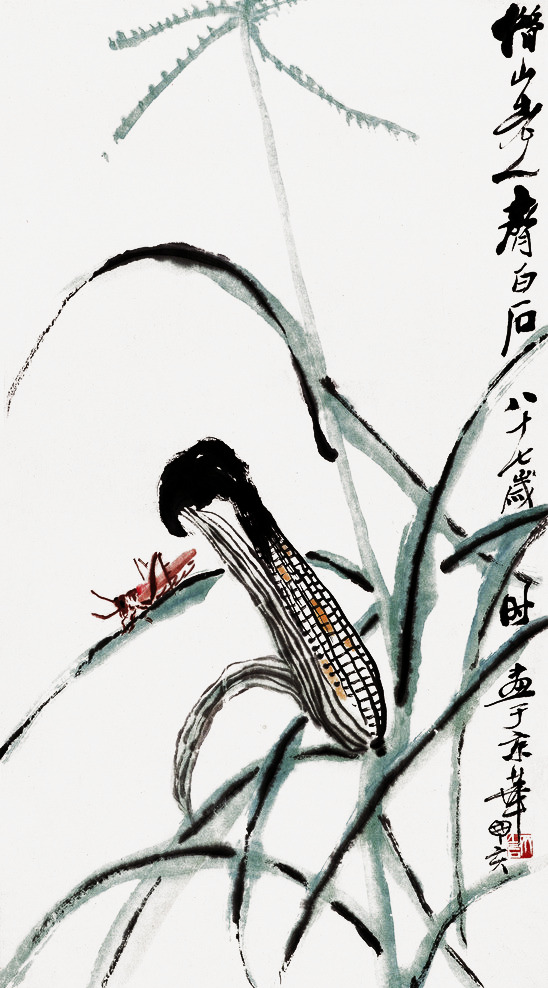 借山老人齊白石八十七歲时畫于京華甲亥